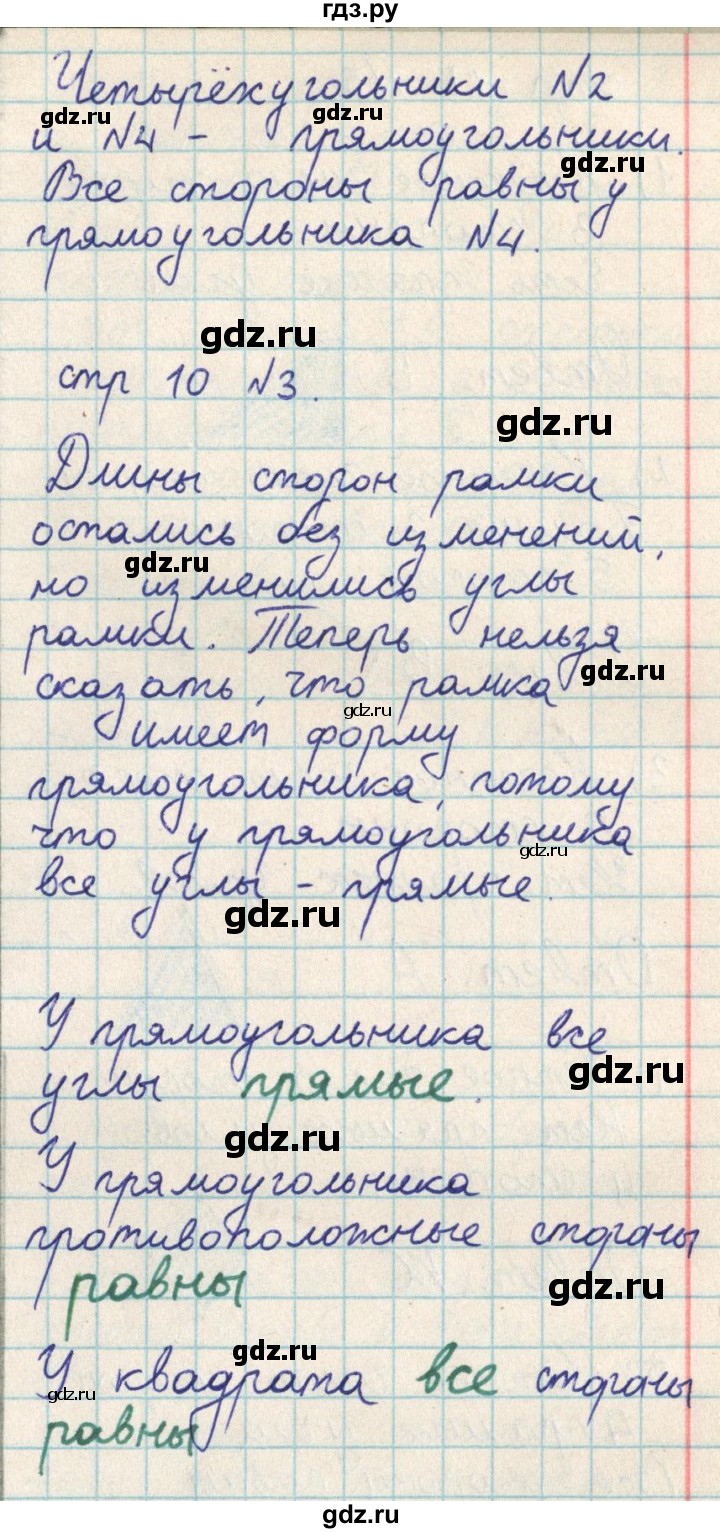 гдз.ру
Четырёхугольники N2
gdz.ru
gdz.ru
и N4 - прямоугольники.
gdz.ru
Все стороны равны у
прямоугольника N4.
gdz.ru
стр 10 N3.
gdz.ru
Длины сторон рамки
остались без изменений,
gdz.ru
но изменились углы
рамки. Теперь нельзя
gdz.ru
сказать, что рамка
gdz.ru
имеет форму
прямоугольника, потому
что у прямоугольника
gdz.ru
все углы - прямые.
gdz.ru
У прямоугольника все
gdz.ru
углы прямые.
gdz.ru
У прямоугольника
противоположные стороны
равны
gdz.ru
gdz.ru
У квадрата все стороны
gdz.ru
равны
gdz.ru